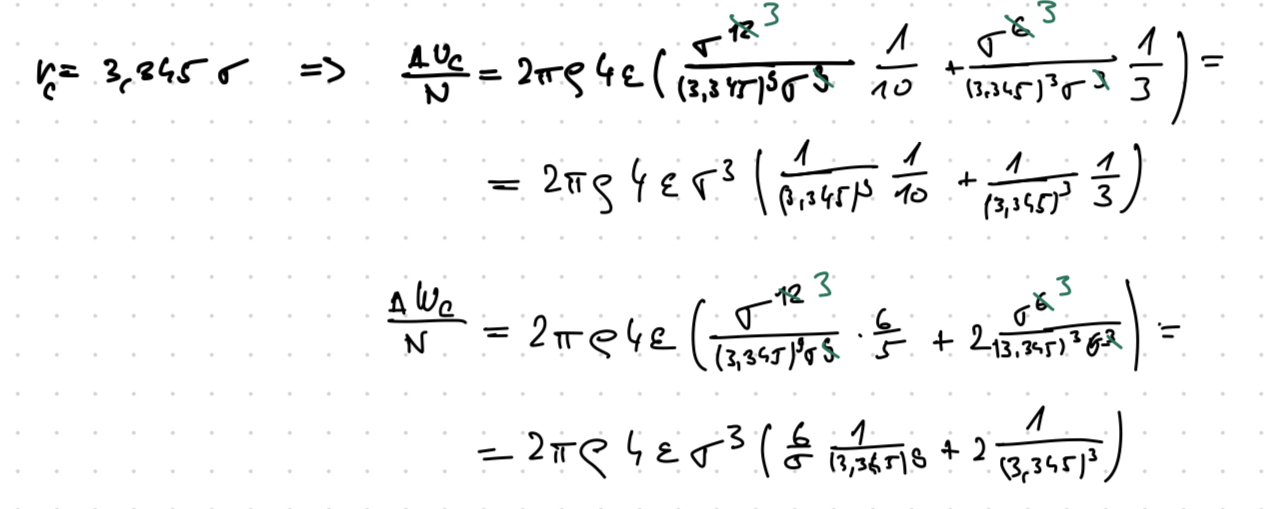 r_c = 3,345 σ => ΔU_c/N = 2πρ 4ε ( σ^12 3/((3,345)^9 σ^9) 1/10 + σ^6 3/((3,345)^3 σ^3) 1/3 ) =
= 2πρ 4 ε σ^3 ( 1/(3,345)^9 1/10 + 1/(3,345)^3 1/3 )
ΔW_c/N = 2πρ4ε ( σ^12 3/((3,345)^9 σ^9) · 6/5 + 2 σ^6 3/((3,345)^3 σ^3) ) =
= 2πρ 4 ε σ^3 ( 6/5 1/(3,345)^9 + 2 1/(3,345)^3 )